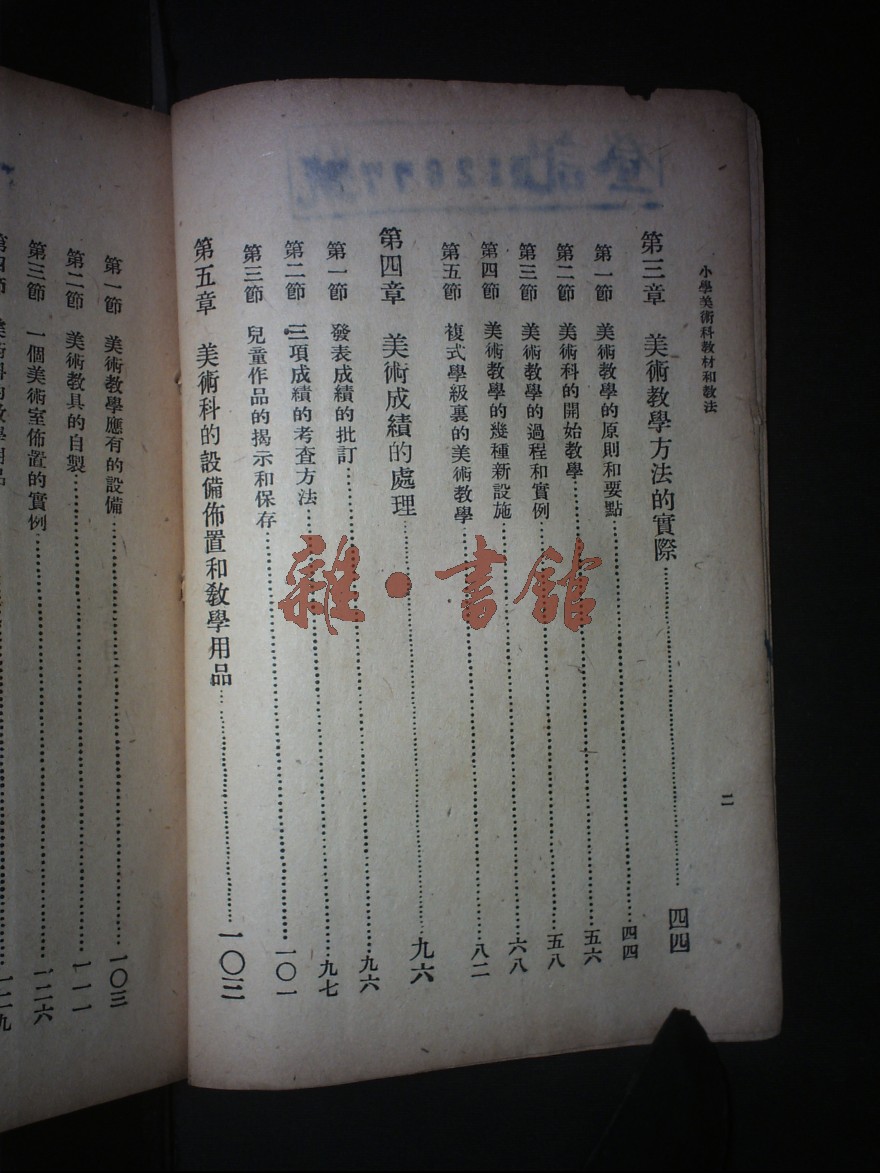 小學美術科教材和教法
二
第三章 美術教學方法的實際……四四
第一節 美術教學的原則和要點……四四
第二節 美術科的開始教學……五六
第三節 美術教學的過程和實例……五八
第四節 美術教學的幾種新設施……六八
第五節 複式學級裏的美術教學……八二
第四章 美術成績的處理……九六
第一節 發表成績的批訂……九六
第二節 三項成績的考查方法……九七
第三節 兒童作品的揭示和保存……一〇一
第五章 美術科的設備佈置和教學用品……一〇三
第一節 美術教學應有的設備……一〇三
第二節 美術教具的自製……一一一
第三節 一個美術室佈置的實例……一二六
第四節 美術科的教學用品……一二九
雜·書館